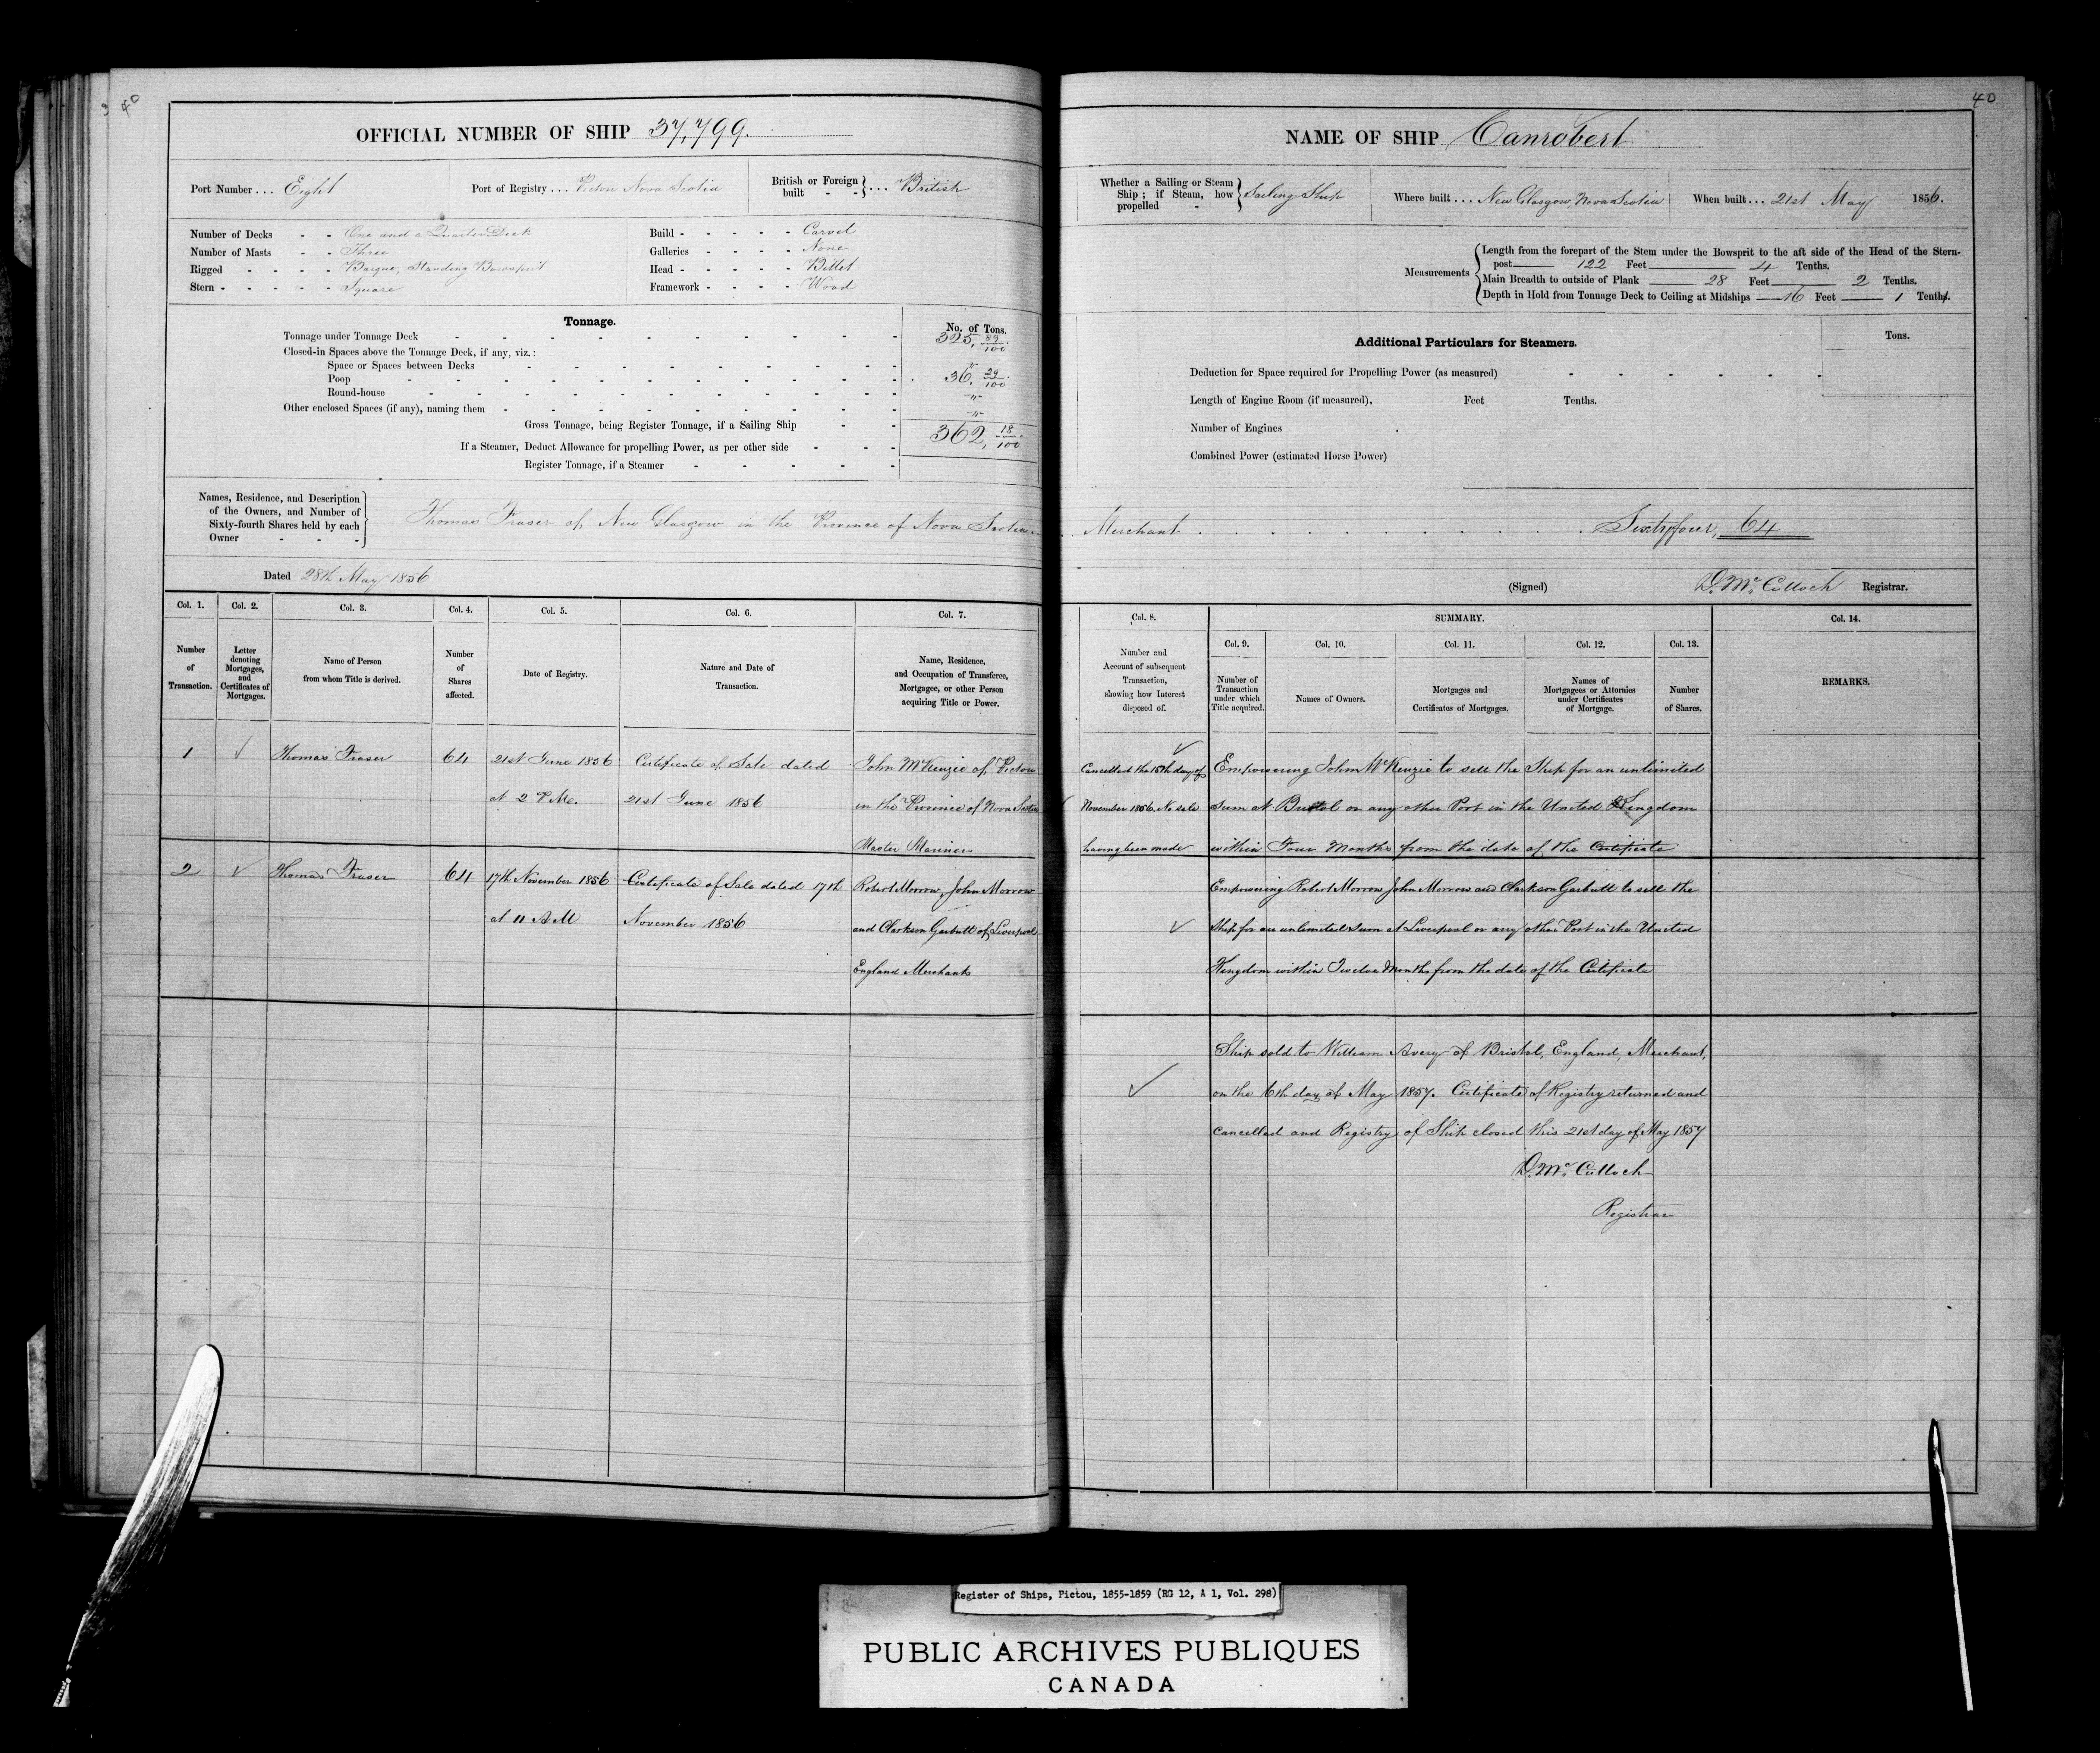 40
40
OFFICIAL NUMBER OF SHIP 37,799.
Port Number ... Eight
Port of Registry ... Pictou Nova Scotia
British or Foreign built - - } ... British
Number of Decks - - One and a Quarter Deck
Number of Masts - - Three
Rigged - - - - Barque, Standing Bowsprit
Stern - - - - - Square
Build - - - - - Carvel
Galleries - - - - None
Head - - - - - Billet
Framework - - - - Wood
Tonnage.
No. of Tons.
Tonnage under Tonnage Deck 325, 89/100
Closed-in Spaces above the Tonnage Deck, if any, viz.:
Space or Spaces between Decks "
Poop 36, 29/100
Round-house "
Other enclosed Spaces (if any), naming them "
Gross Tonnage, being Register Tonnage, if a Sailing Ship 362, 18/100
If a Steamer, Deduct Allowance for propelling Power, as per other side
Register Tonnage, if a Steamer
Names, Residence, and Description
of the Owners, and Number of
Sixty-fourth Shares held by each
Owner - - -
Thomas Fraser of New Glasgow in the Province of Nova Scotia
Dated 28th May 1856
Col. 1. Col. 2. Col. 3. Col. 4. Col. 5. Col. 6. Col. 7.
Number of Transaction.
Letter denoting Mortgages, and Certificates of Mortgages.
Name of Person from whom Title is derived.
Number of Shares affected.
Date of Registry.
Nature and Date of Transaction.
Name, Residence, and Occupation of Transferee, Mortgagee, or other Person acquiring Title or Power.
1 Thomas Fraser 64 21st June 1856 Certificate of Sale dated John McKenzie of Pictou
at 2 P.M. 21st June 1856 in the Province of Nova Scotia
Master Mariner
2 Thomas Fraser 64 17th November 1856 Certificate of Sale dated 17th Robert Morrow, John Morrow
at 11 A M November 1856 and Clarkson Garbutt of Liverpool
England Merchants
40
NAME OF SHIP Canrobert
Whether a Sailing or Steam Ship; if Steam, how propelled - } Sailing Ship
Where built ... New Glasgow, Nova Scotia
When built ... 21st May 1856.
Measurements
Length from the forepart of the Stem under the Bowsprit to the aft side of the Head of the Stern-
post 122 Feet 4 Tenths.
Main Breadth to outside of Plank 28 Feet 2 Tenths.
Depth in Hold from Tonnage Deck to Ceiling at Midships 16 Feet 1 Tenths.
Additional Particulars for Steamers.
Tons.
Deduction for Space required for Propelling Power (as measured)
Length of Engine Room (if measured), Feet Tenths.
Number of Engines
Combined Power (estimated Horse Power)
Merchant Sixtyfour, 64
(Signed) D. McCulloch Registrar.
Col. 8. SUMMARY. Col. 14.
Col. 9. Col. 10. Col. 11. Col. 12. Col. 13.
Number and Account of subsequent Transaction, showing how Interest disposed of.
Number of Transaction under which Title acquired.
Names of Owners.
Mortgages and Certificates of Mortgages.
Names of Mortgagees or Attornies under Certificates of Mortgage.
Number of Shares.
REMARKS.
Cancelled the 15th day of Empowering John McKenzie to sell the Ship for an unlimited
November 1856. No sale sum at Bristol or any other Port in the United Kingdom
having been made within Four Months from the date of the Certificate
Empowering Robert Morrow John Morrow and Clarkson Garbutt to sell the
Ship for an unlimited sum at Liverpool or any other Port in the United
Kingdom within Twelve Months from the date of the Certificate
Ship sold to William Avery of Bristol, England, Merchant,
on the 6th day of May 1857. Certificate of Registry returned and
Cancelled and Registry of Ship closed this 21st day of May 1857
D. McCulloch
Registrar
Register of Ships, Pictou, 1855-1859 (RG 12, A 1, Vol. 298)
PUBLIC ARCHIVES PUBLIQUES
CANADA